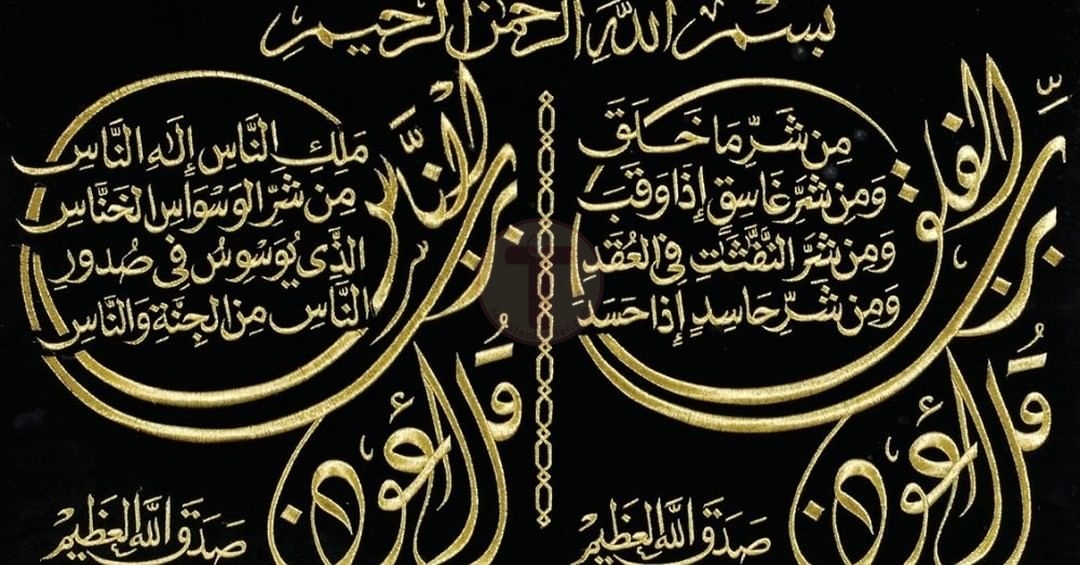 بِسْمِ اللهِ الرَّحْمٰنِ الرَّحِيمِ
قُلْ أَعُوذُ
بِرَبِّ الفلق
مِن شَرِّ مَا خَلَقَ
وَمِن شَرِّ غَاسِقٍ إِذَا وَقَبَ
وَمِن شَرِّ النَّفَّثَتِ فِي العُقَدِ
وَمِن شَرِّ حَاسِدٍ إِذَا حَسَدَ
صَدَقَ اللهُ العَظِيمُ
قُلْ أَعُوذُ
بِرَبِّ النَّاسِ
مَلِكِ النَّاسِ إِلَٰهِ النَّاسِ
مِن شَرِّ الوَسْوَاسِ الخَنَّاسِ
الَّذِي يُوَسْوِسُ فِي صُدُورِ
النَّاسِ مِنَ الجِنَّةِ وَالنَّاسِ
صَدَقَ اللهُ العَظِيمُ